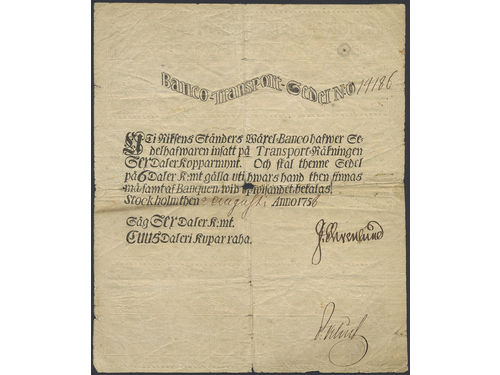 Banco-Transport-Sedel N:o 14186
Uti Riksens Ständers Wäxel-Banco hafwer Se-
delhafwaren insatt på Transport-Räkningen
Sex Daler Kopparmynt. Och skal thenne Sedel
på 6 Daler K:mt gälla uti hwars hand then finnas
må, samt af Banquen wid upwisandet betalas.
Stockholm then Augusti Anno 1756
Säg Sex Daler K:mt.
Cuusi Daleri Kupar raha.